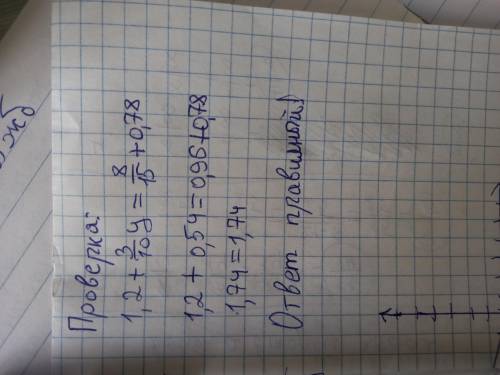 Проверка:
1,2 + 3/10 y = 8/15 + 0,78
1,2 + 0,54 = 0,96 + 0,78
1,74 = 1,74
Ответ правильной!)